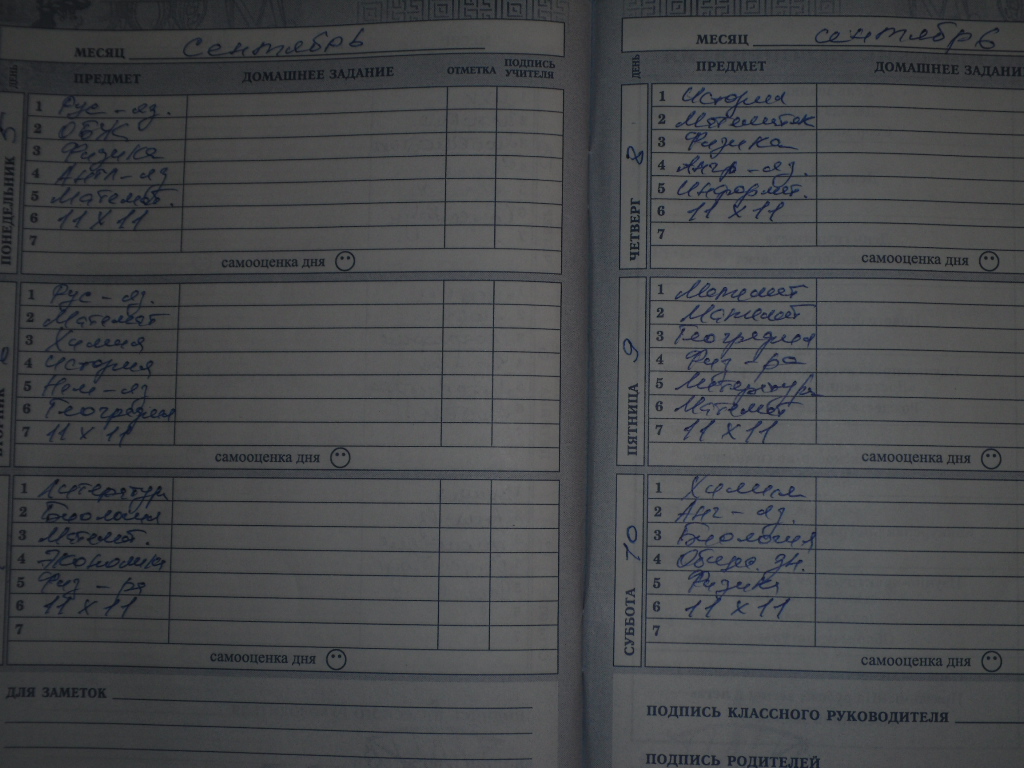 МЕСЯЦ сентябрь
ДЕНЬ ПРЕДМЕТ ДОМАШНЕЕ ЗАДАНИЕ ОТМЕТКА ПОДПИСЬ УЧИТЕЛЯ
ПОНЕДЕЛЬНИК 5
1 Рус-яз.
2 ОБЖ
3 Физика
4 Англ-яз
5 Математ.
6 11 х 11
7
самооценка дня
1 Рус-яз.
2 Математ
3 Химия
4 История
5 Нем-яз
6 География
7 11 х 11
самооценка дня
1 Литератур
2 Биология
3 Математ.
4 Экономика
5 Физ-ра
6 11 х 11
7
самооценка дня
ДЛЯ ЗАМЕТОК
МЕСЯЦ сентябрь
ДЕНЬ ПРЕДМЕТ ДОМАШНЕЕ ЗАДАНИ
ЧЕТВЕРГ 8
1 История
2 Математик
3 Физика
4 Англ-яз.
5 Информат.
6 11 х 11
7
самооценка дня
ПЯТНИЦА 9
1 Математ
2 Математ
3 География
4 Физ-ра
5 Литература
6 Математ
7 11 х 11
самооценка дня
СУББОТА 10
1 Химия
2 Анг-яз.
3 Биология
4 Общес. зн.
5 Физика
6 11 х 11
7
самооценка дня
ПОДПИСЬ КЛАССНОГО РУКОВОДИТЕЛЯ
ПОДПИСЬ РОДИТЕЛЕЙ